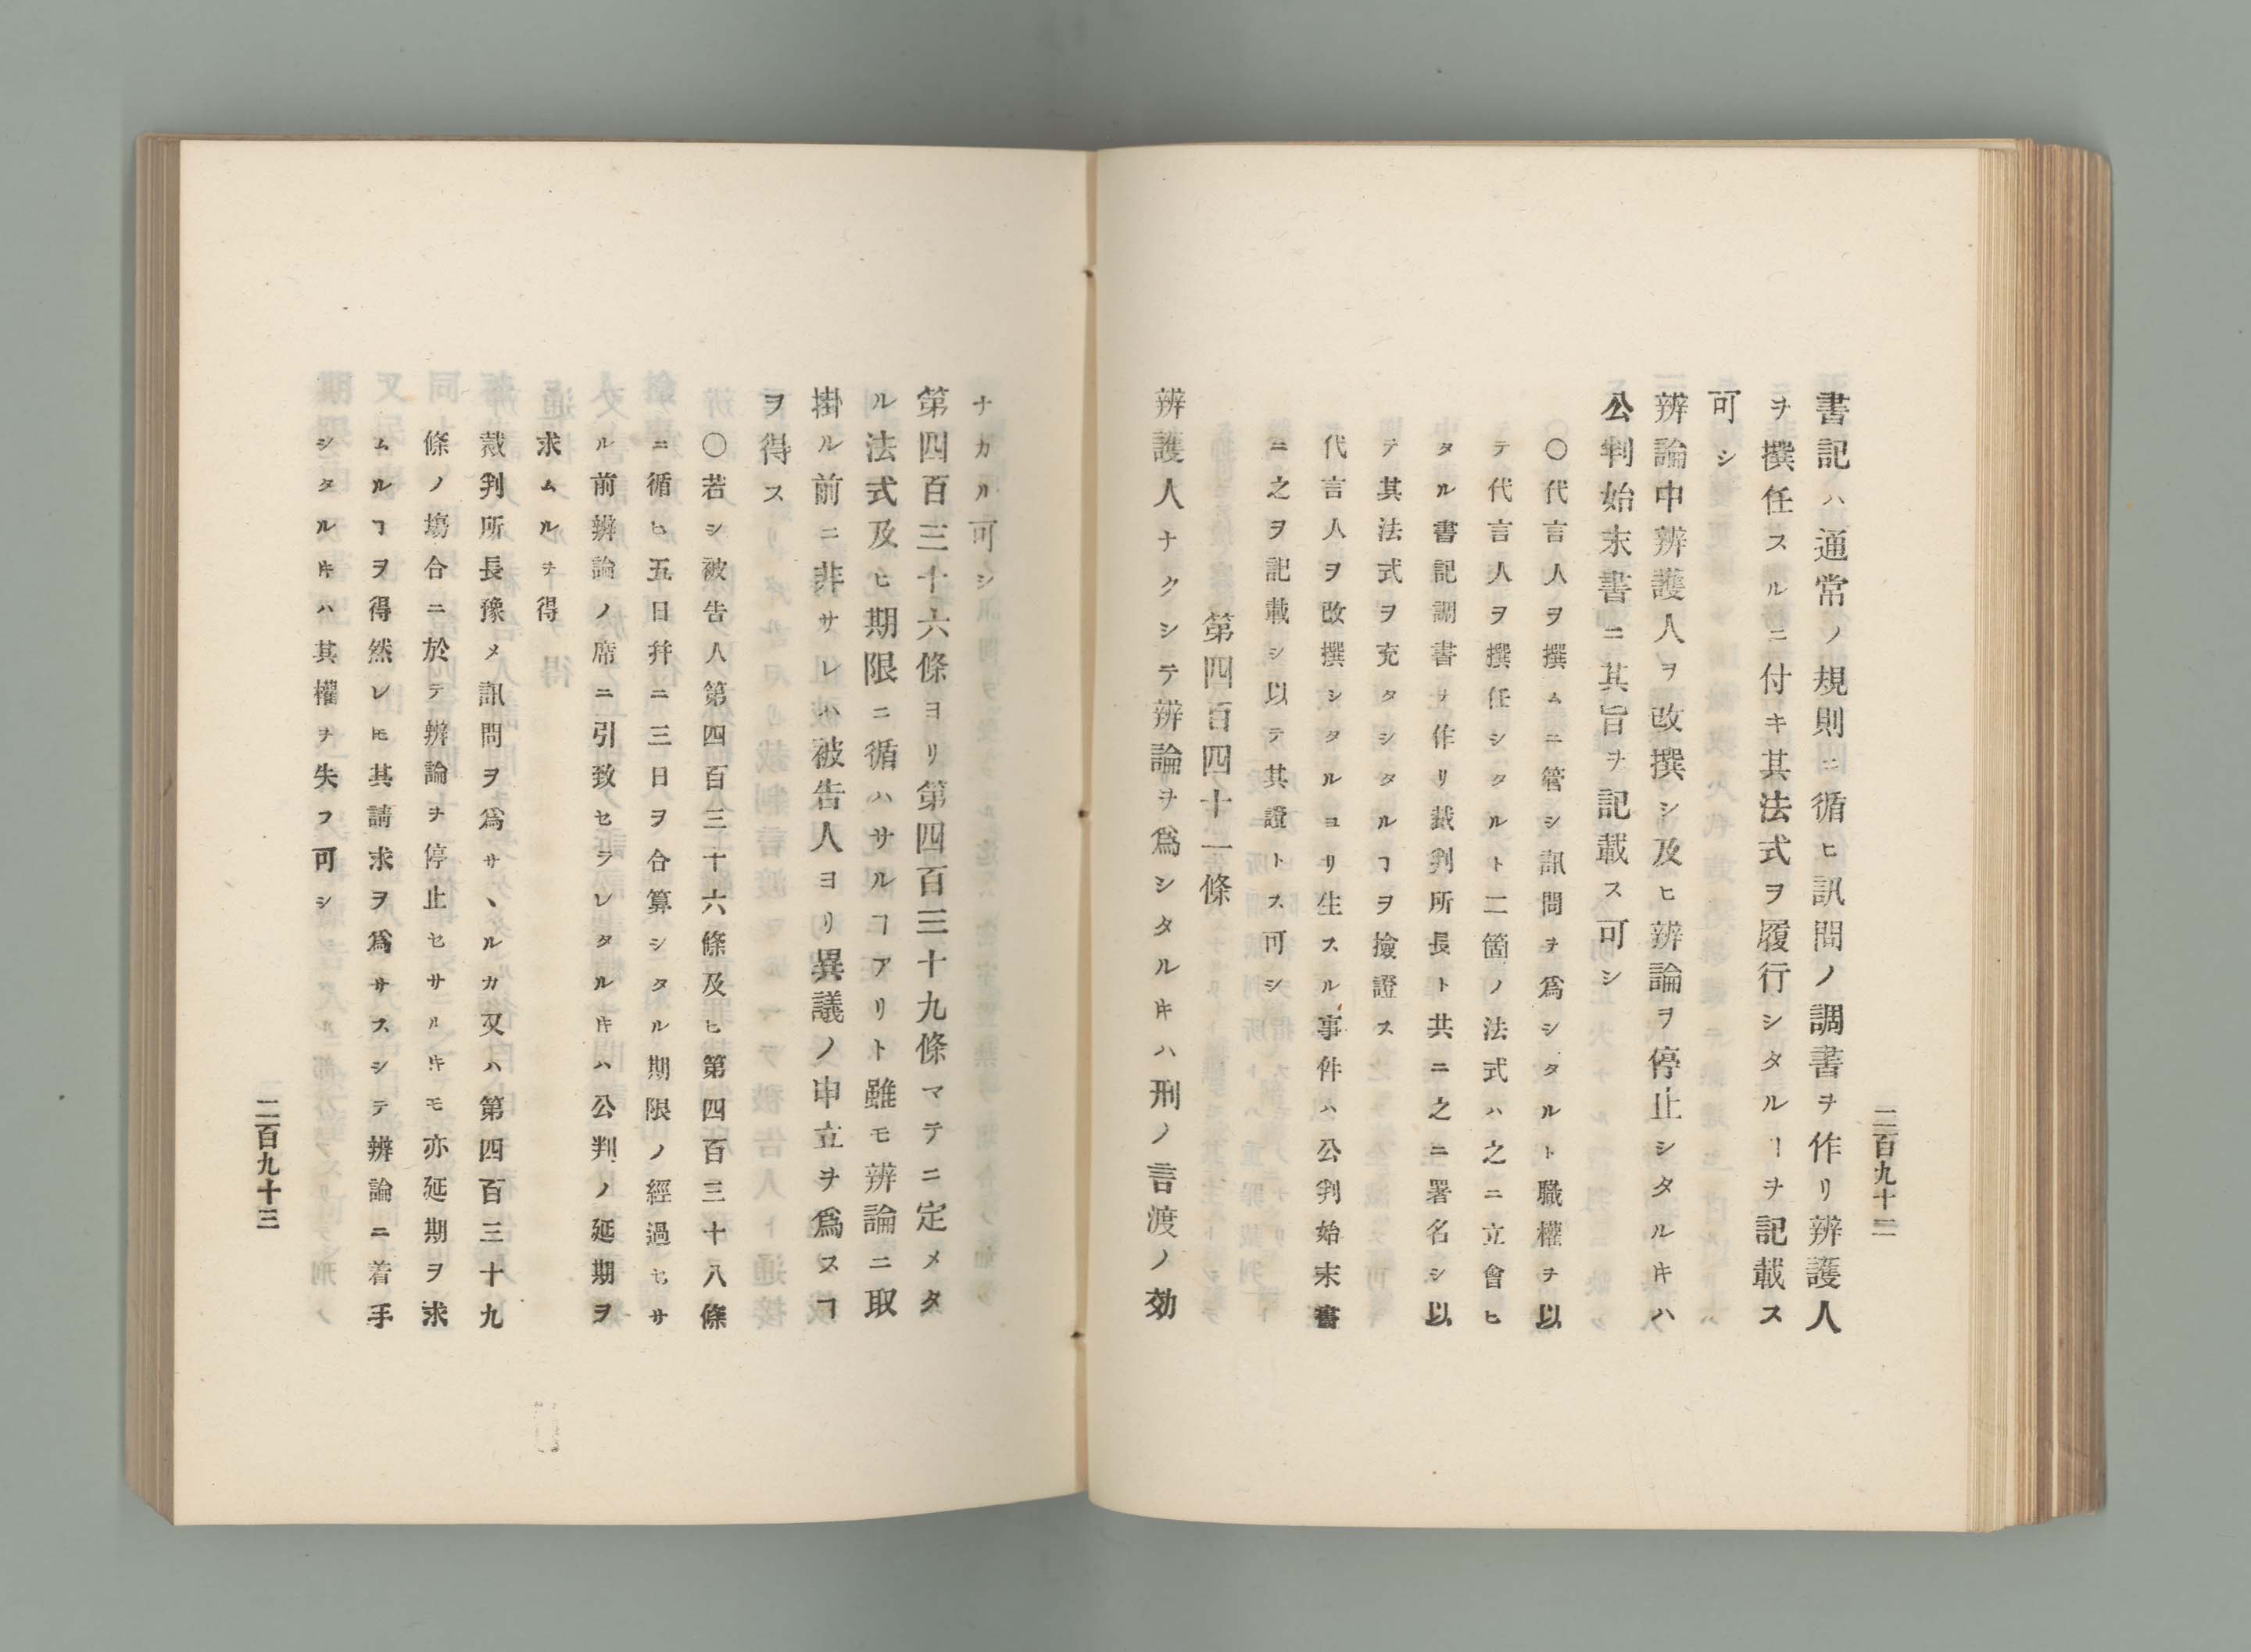 二百九十二
書記ハ通常ノ規則ニ循ヒ訊問ノ調書ヲ作リ辨護人
ヲ撰任スルニ付キ其法式ヲ履行シタルヿヲ記載ス
可シ
辨論中辨護人ヲ改撰シ及ヒ辨論ヲ停止シタルキハ
公判始末書ニ其旨ヲ記載ス可シ
〇代言人ヲ撰ムニ管シ訊問ヲ爲シタルト職權ヲ以
テ代言人ヲ撰任シタルト二箇ノ法式ハ之ニ立會ヒ
タル書記調書ヲ作リ裁判所長ト共ニ之ニ署名シ以
テ其法式ヲ充タシタルヿヲ撿證ス
代言人ヲ改撰シタルヨリ生スル事件ハ公判始末書
ニ之ヲ記載シ以テ其證トス可シ
第四百四十一條
辨護人ナクシテ辨論ヲ爲シタルキハ刑ノ言渡ノ効
ナカル可シ
第四百三十六條ヨリ第四百三十九條マテニ定メタ
ル法式及ヒ期限ニ循ハサルヿアリト雖モ辨論ニ取
掛ル前ニ非サレハ被告人ヨリ異議ノ申立ヲ爲スヿ
ヲ得ス
〇若シ被告人第四百三十六條及ヒ第四百三十八條
ニ循ヒ五日幷ニ三日ヲ合算シタル期限ノ經過セサ
ル前辨論ノ席ニ引致セラレタルキハ公判ノ延期ヲ
求ムルヲ得
裁判所長豫メ訊問ヲ爲サヽルカ又ハ第四百三十九
條ノ塲合ニ於テ辨論ヲ停止セサルキモ亦延期ヲ求
ムルヿヲ得然レ𪜈其請求ヲ爲サスシテ辨論ニ着手
シタルキハ其權ヲ失フ可シ
二百九十三